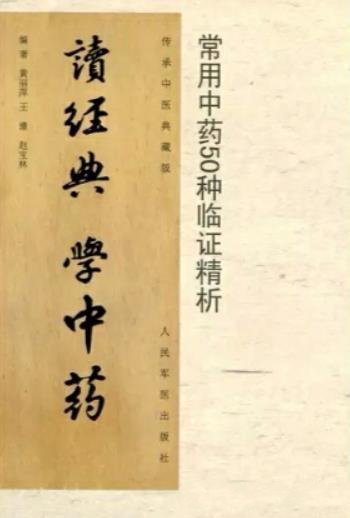 常用中药50种临证精析
传承中医典藏版
人民军医出版社
讀經典 學中药
编著 黄丽萍 王 赵宝林